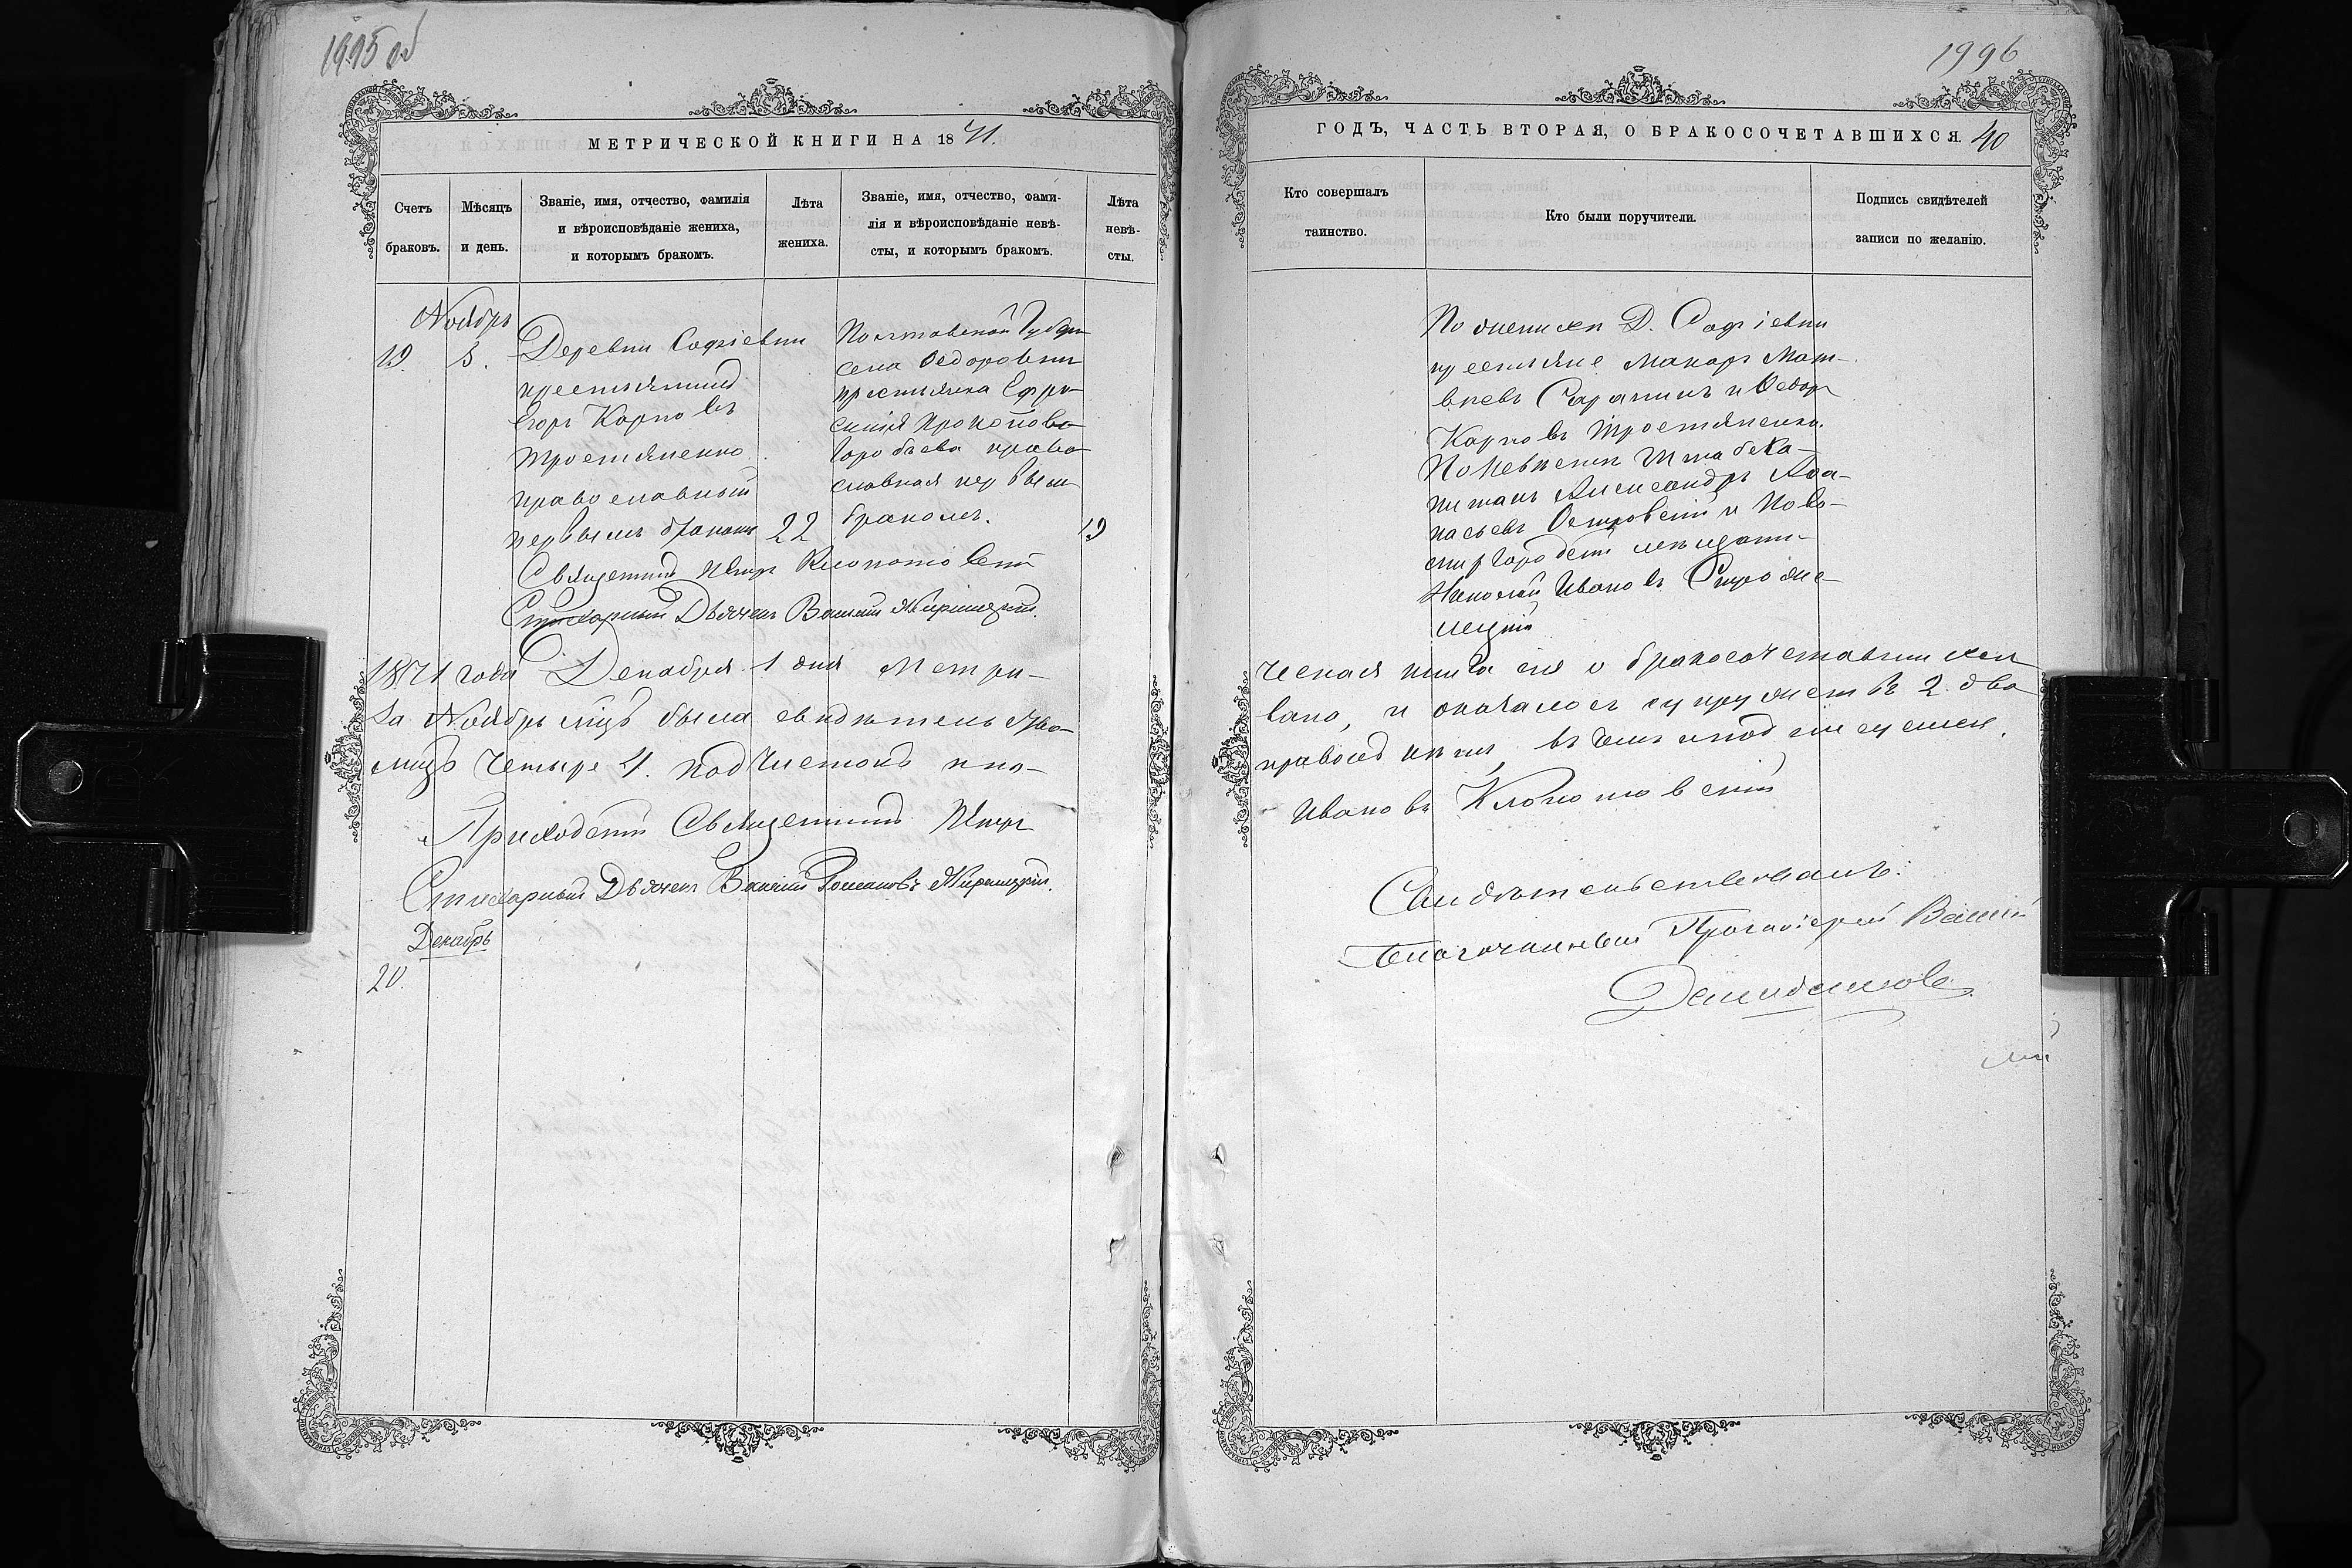 1995 об
МЕТРИЧЕСКОЙ КНИГИ НА 1871.
Счетъ браковъ.
Мѣсяцъ и день.
Званіе, имя, отчество, фамилія
и вѣроисповѣданіе жениха,
и которымъ бракомъ.
Лѣта
жениха.
Званіе, имя, отчество, фами-
лія и вѣроисповѣданіе невѣ-
сты, и которымъ бракомъ.
Лѣта
невѣ-
сты.
Ноябрь
19. 5.
Деревни Софіевки
крестьянинъ
Егоръ Карповъ
Тростяненко
православный
первымъ бракомъ 22
Полтавской Губерн
села Федоровки
крестьянка Ефро
синія Прокопова
Горобьева право
славная первым
бракомъ. 19
Священникъ Петръ Клопотовскій
Стихарный Дьячекъ Василій
1871 года Декабря 1 дня Метри-
за Ноябрь мцъ была свидѣтельство-
лицъ четыре 4. подчистокъ и по-
Приходскій Священникъ Петръ
Стихарный Дьячекъ Василій Романовъ
Декабрь
20.
1996
ГОДЪ, ЧАСТЬ ВТОРАЯ, О БРАКОСОЧЕТАВШИХСЯ. 40
Кто совершалъ
таинство.
Кто были поручители.
Подпись свидѣтелей
записи по желанію.
По женихѣ Д. Софіевки
крестьяне Макаръ Мат-
вѣевъ и Федоръ
Карповъ Тростяненко.
По невѣстѣ Штабска-
питанъ Александръ Афа-
насьевъ Островскій и Ново-
миргородскій мещани-
Николай Ивановъ
ческая книга сія о бракосочетавшихся
вана, и оказалось супружествъ 2. два
правокъ нѣтъ, въ чемъ и подписуемся.
Ивановъ Клопотовскій
Свидѣтельствовалъ:
Благочинный Протоіерей Василій